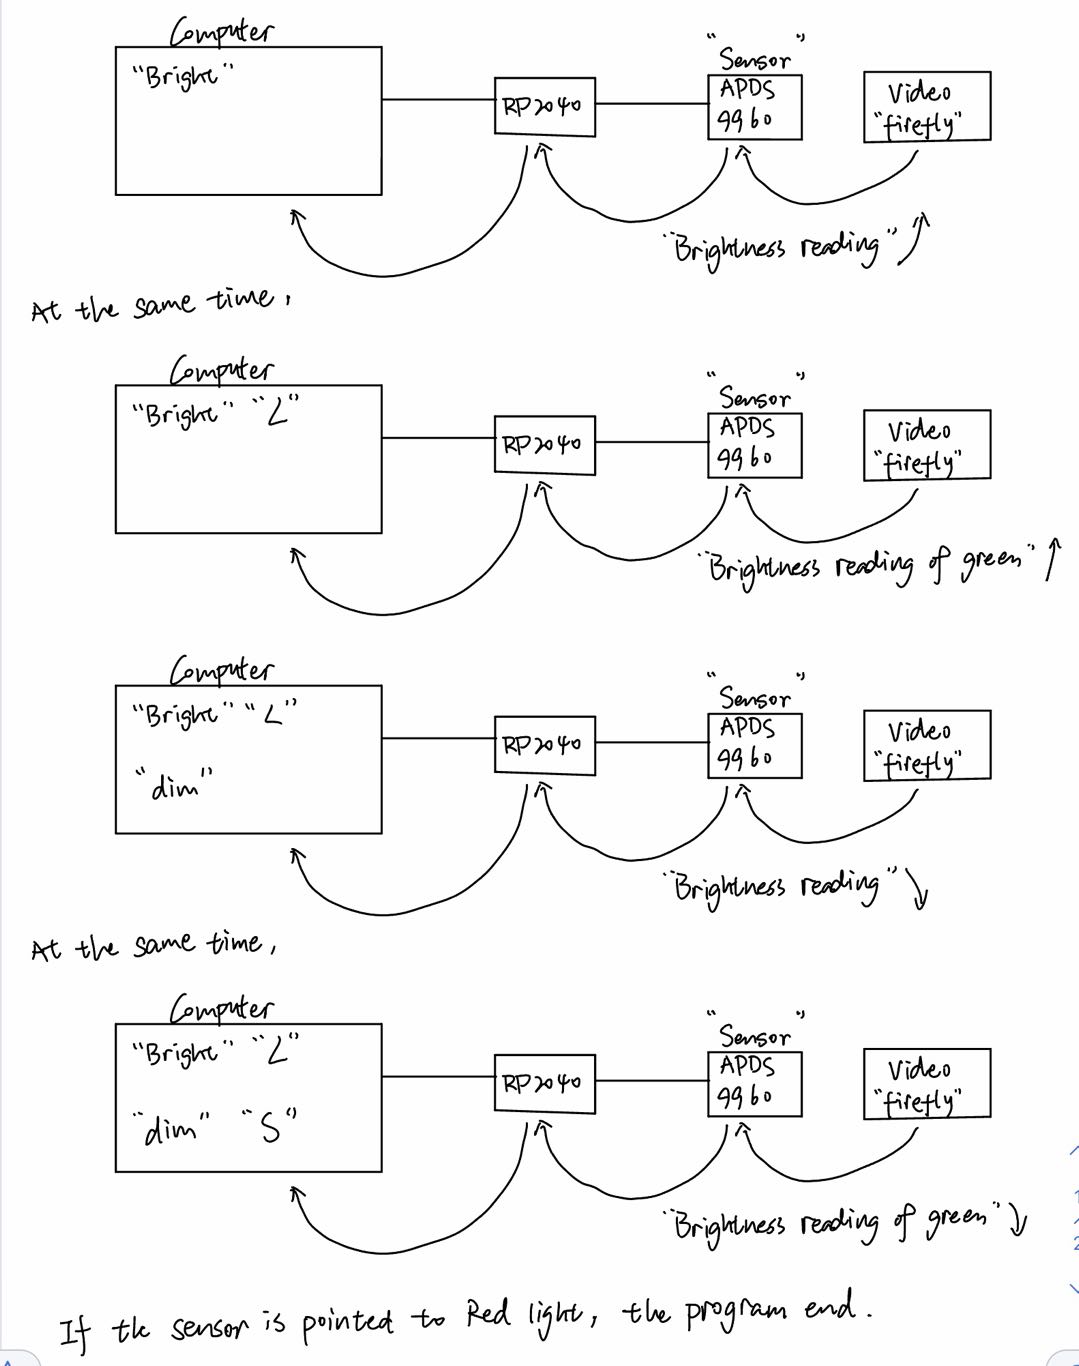 Computer
"Bright"
RP2040
"Sensor"
APDS
9960
Video
"firefly"
"Brightness reading"
At the same time,
Computer
"Bright" "L"
RP2040
"Sensor"
APDS
9960
Video
"firefly"
"Brightness reading of green"
Computer
"Bright" "L"
"dim"
RP2040
"Sensor"
APDS
9960
Video
"firefly"
"Brightness reading"
At the same time,
Computer
"Bright" "L"
"dim" "S"
RP2040
"Sensor"
APDS
9960
Video
"firefly"
"Brightness reading of green"
If the sensor is pointed to Red light, the program end.